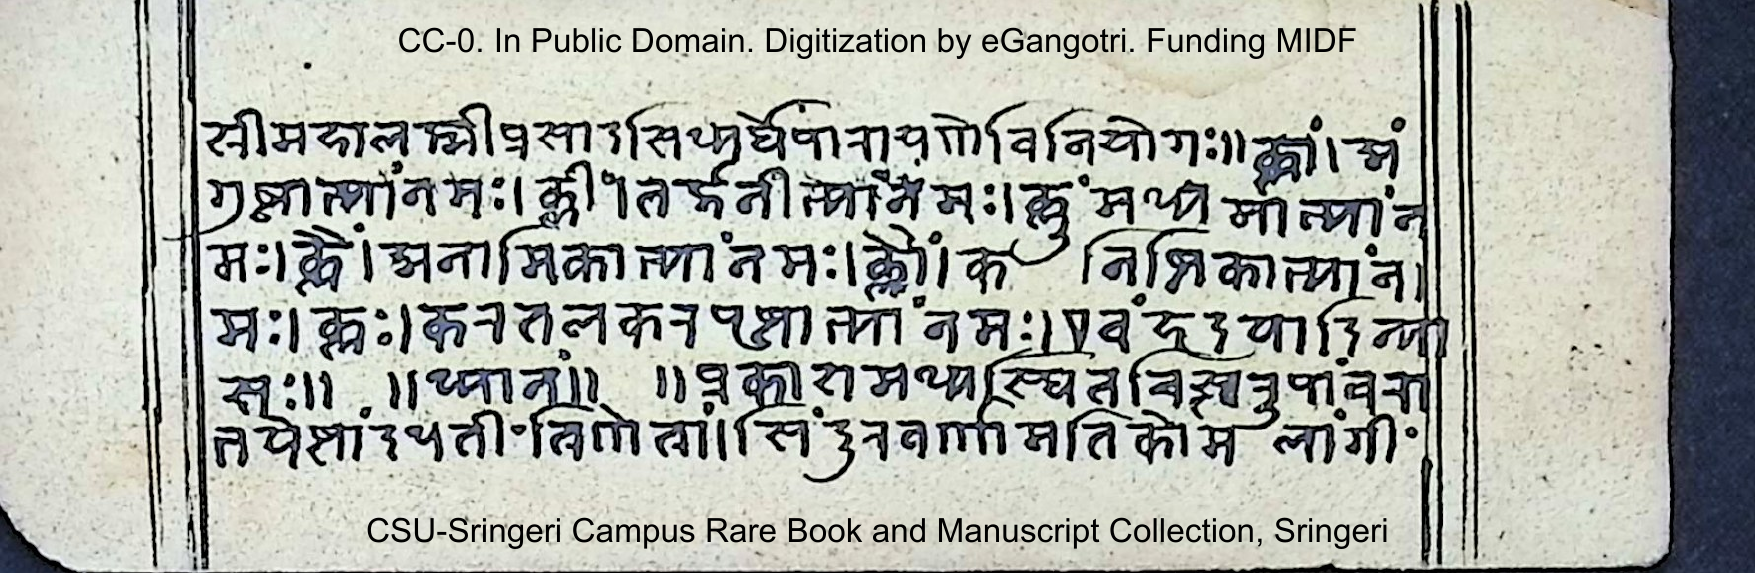 CC-0. In Public Domain. Digitization by eGangotri. Funding MIDF
स्रीमहालक्ष्मीप्रसादसिध्यर्थेपारायणेविनियोगः॥क्लां।अं
गुष्ठाभ्यांनमः।क्लीं।तर्जनीभ्यांनमः।क्लुंमध्यमाभ्यांन
मः।क्लैं।अनामिकाभ्यांनमः।क्लौं।कनिष्ठिकाभ्यांन।
मः।क्लः।करतलकरपृष्ठाभ्यांनमः।एवंहृदयादिन्या
सः॥ ॥ध्यानं॥ ॥
तिंदधतीं त्रिणेत्रां।सिंदुरवर्णामतिकोमलांगीं
CSU-Sringeri Campus Rare Book and Manuscript Collection, Sringeri